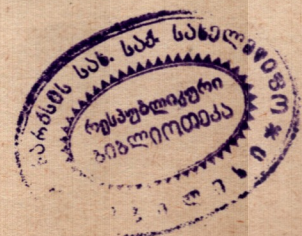 მარქსის სახ. საქ. სახელმწიფო
რესპუბლიკური
ბიბლიოთეკა